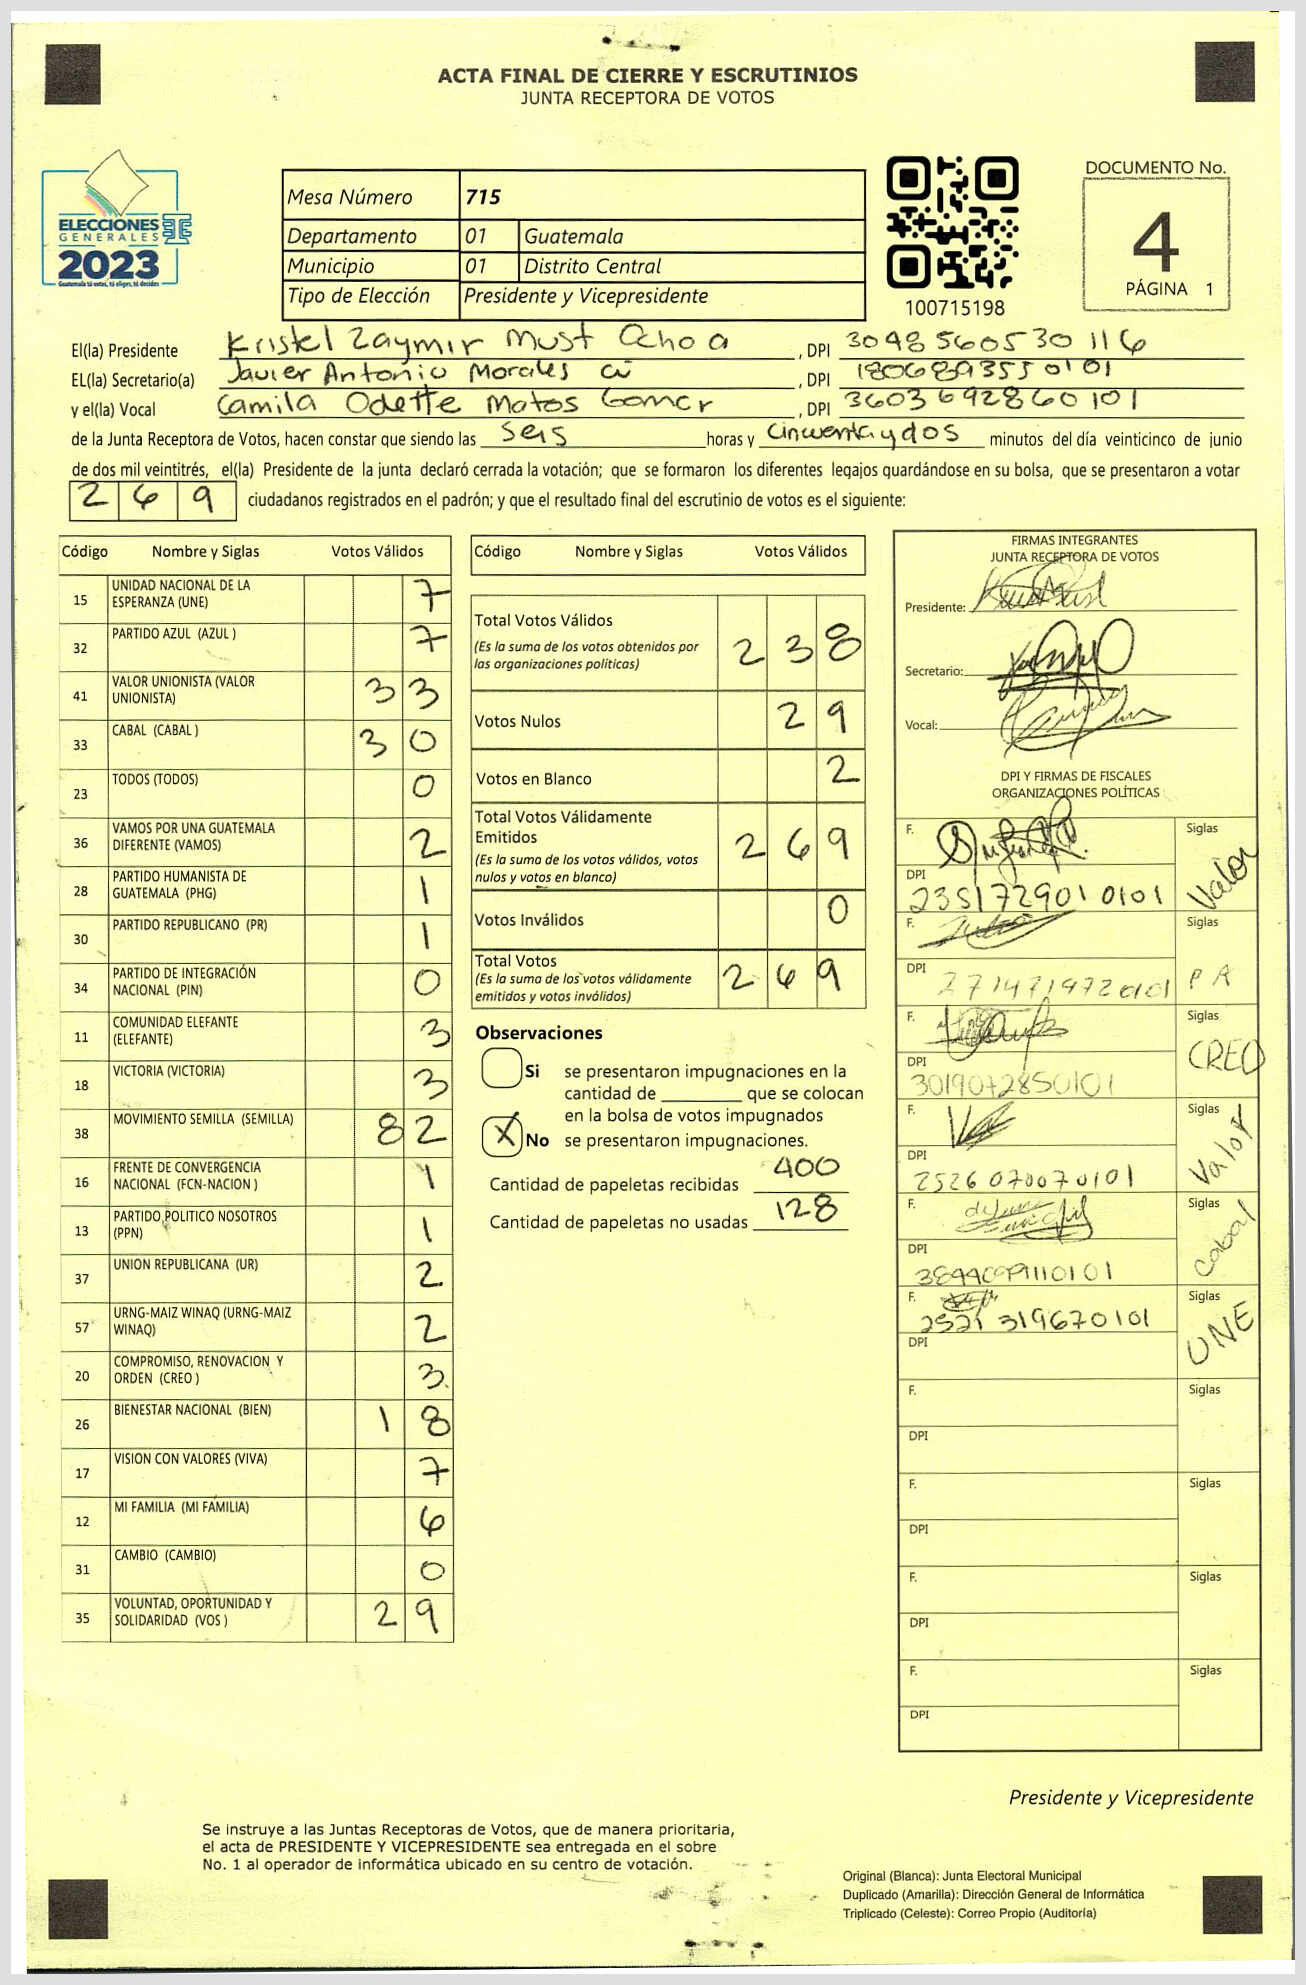 ACTA FINAL DE CIERRE Y ESCRUTINIOS
JUNTA RECEPTORA DE VOTOS
ELECCIONES
GENERALES
2023
Guatemala tú votas, tú eliges, tú decides
Mesa Número 715
Departamento 01 Guatemala
Municipio 01 Distrito Central
Tipo de Elección Presidente y Vicepresidente
100715198
DOCUMENTO No.
4
PÁGINA 1
El(la) Presidente Kristel Zaymir Must Ochoa, DPI 3048560530116
EL(la) Secretario(a) Javier Antonio Morales, DPI 1806893550101
y el(la) Vocal Camila Odette Matos Gomer, DPI 3603692860101
de la Junta Receptora de Votos, hacen constar que siendo las seis horas y cincuenta y dos minutos del día veinticinco de junio
de dos mil veintitrés, el(la) Presidente de la junta declaró cerrada la votación; que se formaron los diferentes legajos quardándose en su bolsa, que se presentaron a votar
269 ciudadanos registrados en el padrón; y que el resultado final del escrutinio de votos es el siguiente:
Código Nombre y Siglas Votos Válidos
15 UNIDAD NACIONAL DE LA ESPERANZA (UNE) 7
32 PARTIDO AZUL (AZUL ) 7
41 VALOR UNIONISTA (VALOR UNIONISTA) 33
33 CABAL (CABAL ) 30
23 TODOS (TODOS) 0
36 VAMOS POR UNA GUATEMALA DIFERENTE (VAMOS) 2
28 PARTIDO HUMANISTA DE GUATEMALA (PHG) 1
30 PARTIDO REPUBLICANO (PR) 1
34 PARTIDO DE INTEGRACIÓN NACIONAL (PIN) 0
11 COMUNIDAD ELEFANTE (ELEFANTE) 3
18 VICTORIA (VICTORIA) 3
38 MOVIMIENTO SEMILLA (SEMILLA) 82
16 FRENTE DE CONVERGENCIA NACIONAL (FCN-NACION ) 1
13 PARTIDO POLITICO NOSOTROS (PPN) 1
37 UNION REPUBLICANA (UR) 2
57 URNG-MAIZ WINAQ (URNG-MAIZ WINAQ) 2
20 COMPROMISO, RENOVACION Y ORDEN (CREO ) 3
26 BIENESTAR NACIONAL (BIEN) 18
17 VISION CON VALORES (VIVA) 7
12 MI FAMILIA (MI FAMILIA) 6
31 CAMBIO (CAMBIO) 0
35 VOLUNTAD, OPORTUNIDAD Y SOLIDARIDAD (VOS ) 29
Código Nombre y Siglas Votos Válidos
Total Votos Válidos 238
(Es la suma de los votos obtenidos por
las organizaciones políticas)
Votos Nulos 29
Votos en Blanco 2
Total Votos Válidamente
Emitidos 269
(Es la suma de los votos válidos, votos
nulos y votos en blanco)
Votos Inválidos 0
Total Votos 269
(Es la suma de los votos válidamente
emitidos y votos inválidos)
Observaciones
Si se presentaron impugnaciones en la
cantidad de ________ que se colocan
en la bolsa de votos impugnados
X No se presentaron impugnaciones.
Cantidad de papeletas recibidas 400
Cantidad de papeletas no usadas 128
FIRMAS INTEGRANTES
JUNTA RECEPTORA DE VOTOS
Presidente:
Secretario:
Vocal:
DPI Y FIRMAS DE FISCALES
ORGANIZACIONES POLÍTICAS
F. Siglas Valor
DPI 2351729010101
F. Siglas PA
DPI 2771471972 0101
F. Siglas CREO
DPI 3019072850101
F. Siglas Valor
DPI 2526070070101
F. Siglas Cabal
DPI
F. Siglas UNE
2521319670101
DPI
F. Siglas
DPI
F. Siglas
DPI
F. Siglas
DPI
F. Siglas
DPI
Presidente y Vicepresidente
Se instruye a las Juntas Receptoras de Votos, que de manera prioritaria,
el acta de PRESIDENTE Y VICEPRESIDENTE sea entregada en el sobre
No. 1 al operador de informática ubicado en su centro de votación.
Original (Blanca): Junta Electoral Municipal
Duplicado (Amarilla): Dirección General de Informática
Triplicado (Celeste): Correo Propio (Auditoría)